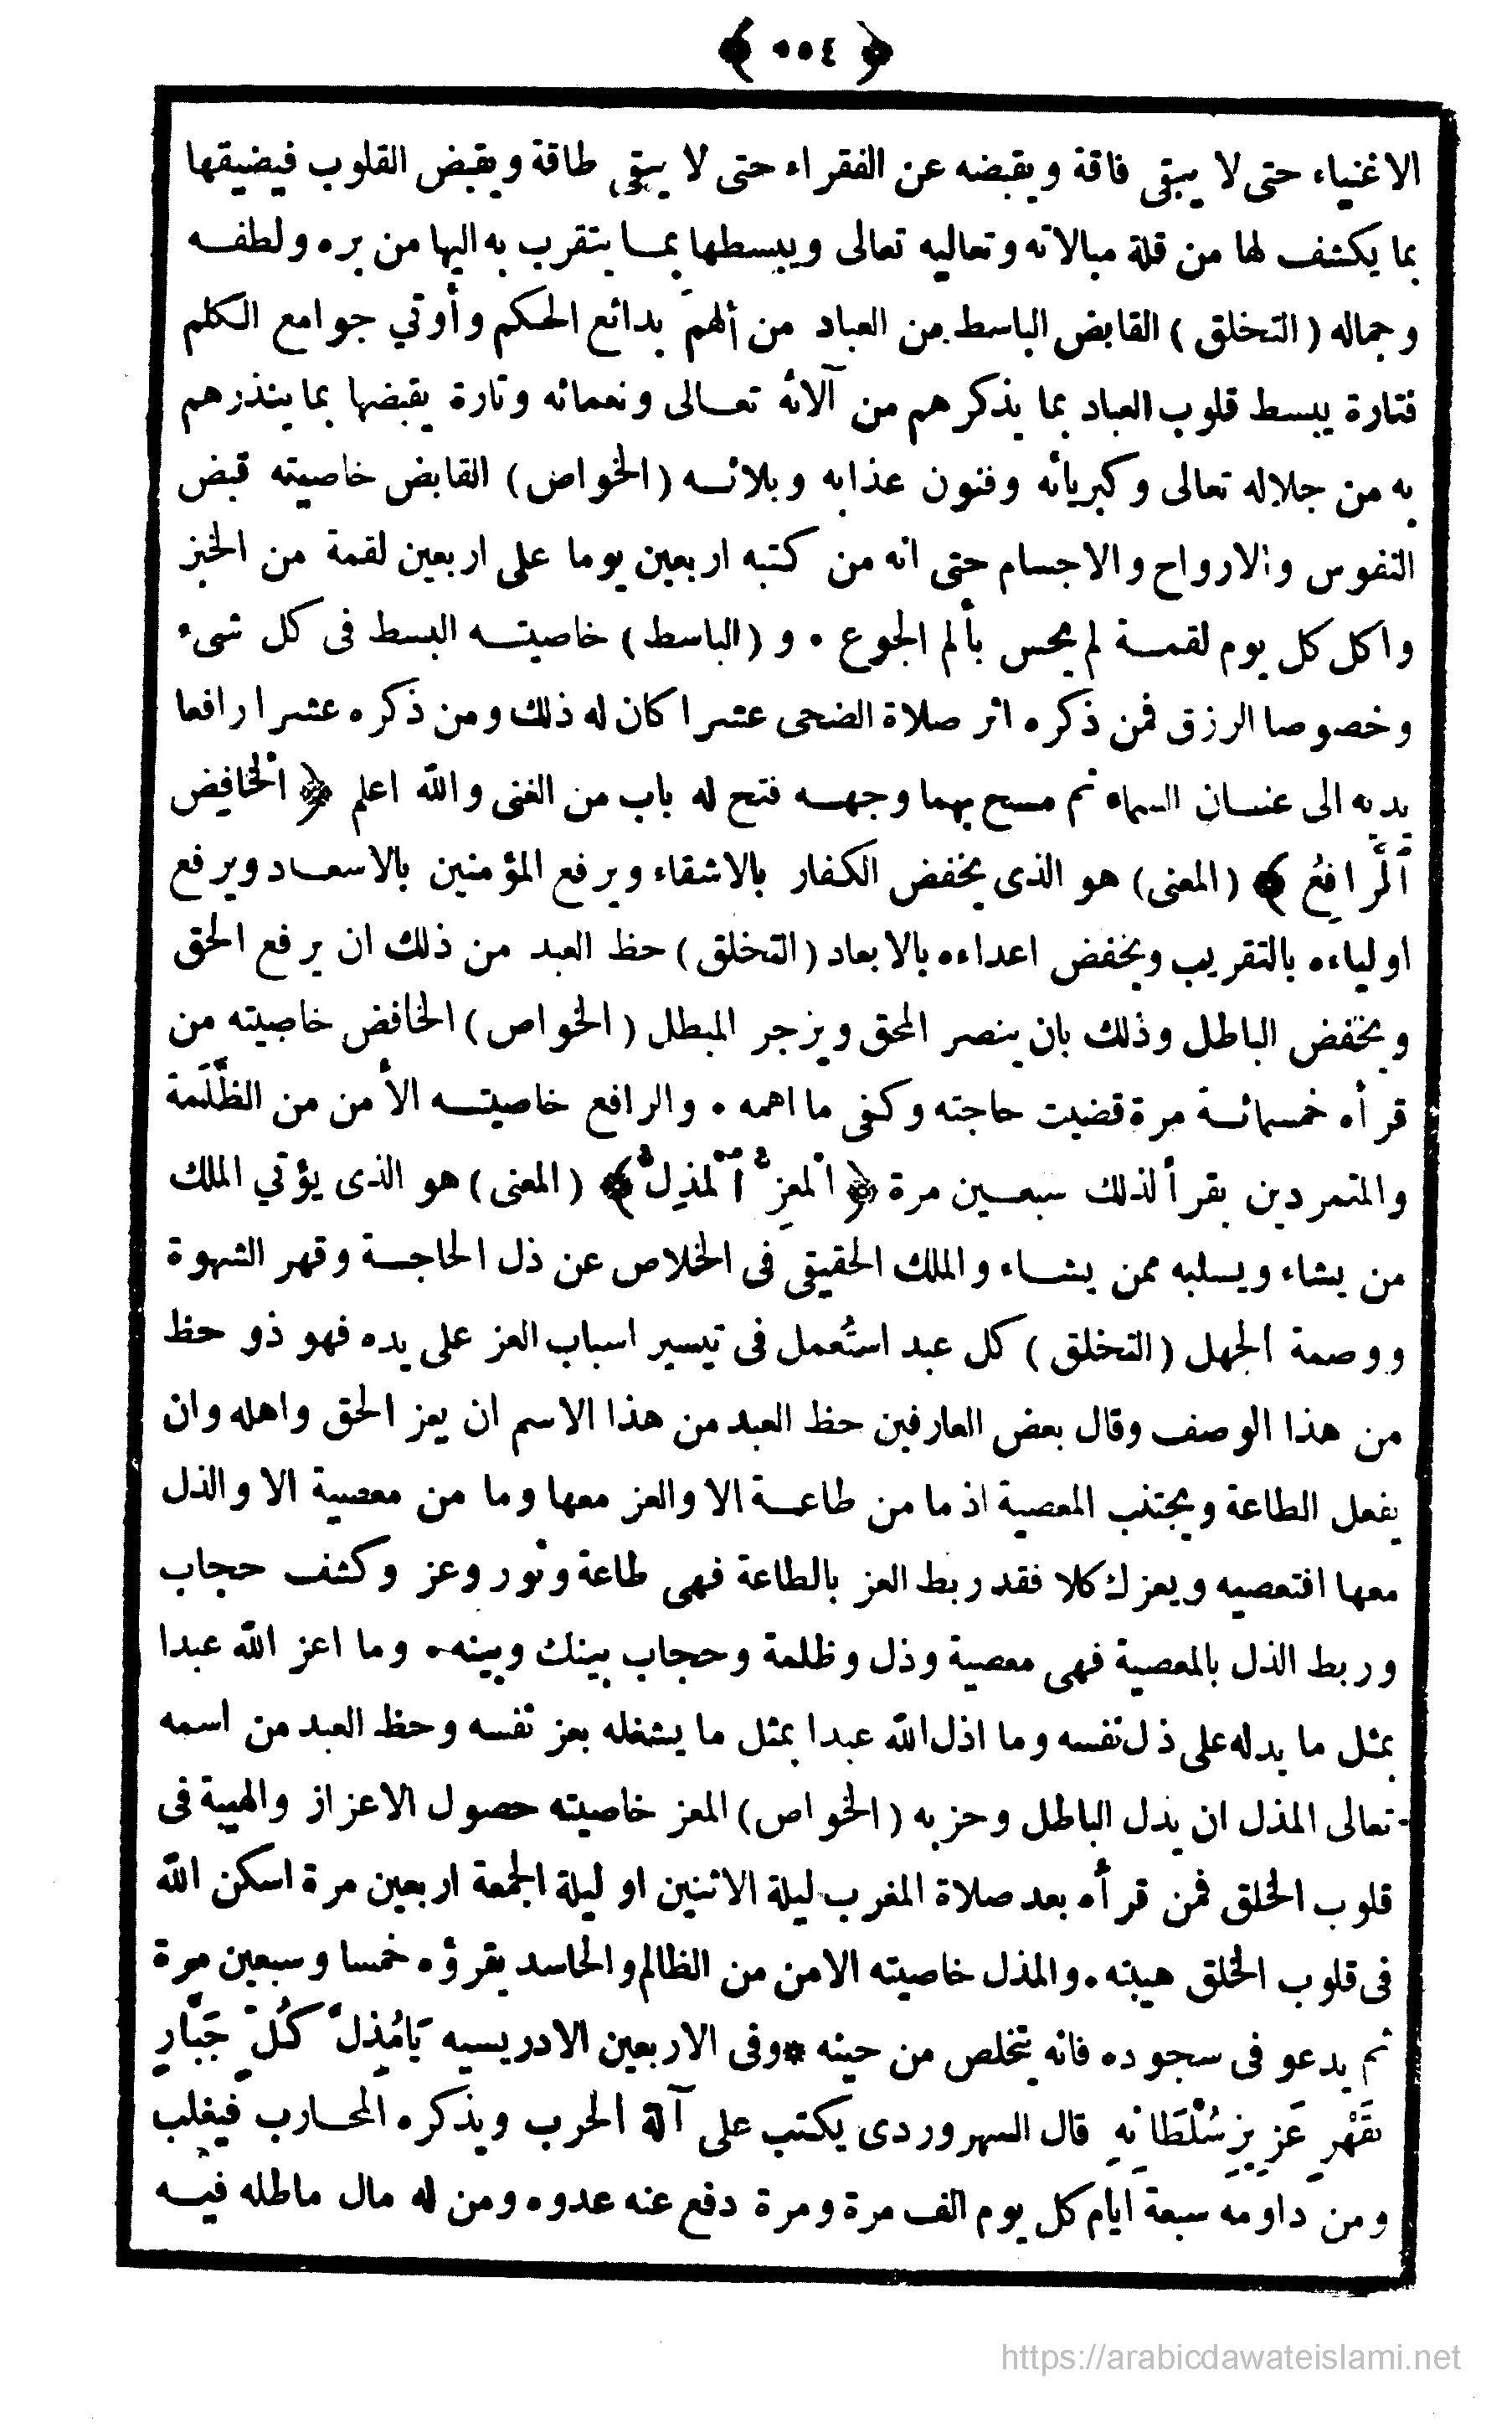 ﴿ ٥٥٤ ﴾
الاغنياء حتى لا يبقى فاقة ويقبضه عن الفقراء حتى لا يبقى طاقة ويقبض القلوب فيضيقها
بما يكشف لها من قلة مبالاته وتعاليه تعالى ويبسطها بما يتقرب به اليها من بره ولطفه
وجماله ( التخلق ) القابض الباسط من العباد من ألهم بدائع الحكم وأوتي جوامع الكلم
فتارة يبسط قلوب العباد بما يذكرهم من آلائه تعالى ونعمائه وتارة يقبضها بما ينذرهم
به من جلاله تعالى وكبريائه وفنون عذابه وبلائه (الخواص) القابض خاصيته قبض
النفوس والارواح والاجسام حتى انه من كتبه اربعين يوما على اربعين لقمة من الخبز
واكل كل يوم لقمة لم يحس بألم الجوع ٠ و (الباسط) خاصيته البسط فى كل شىء
وخصوصا الرزق فمن ذكره اثر صلاة الضحى عشرا كان له ذلك ومن ذكره عشرا رافعا
يديه الى عنان السماء ثم مسح بهما وجهه فتح له باب من الغنى والله اعلم ﴿ اْلخَافِض
اَلرَّافِعُ ﴾ (المعنى) هو الذى يخفض الكفار بالاشقاء ويرفع المؤمنين بالاسعاد ويرفع
اولياءه بالتقريب ويخفض اعداءه بالابعاد (التخلق) حظ العبد من ذلك ان يرفع الحق
ويخفض الباطل وذلك بان ينصر المحق ويزجر المبطل (الخواص) الخافض خاصيته من
قرأه خمسمائة مرة قضيت حاجته وكفى ما اهمه ٠ والرافع خاصيته الأمن من الظَّلَمة
والمتمردين يقرأ لذلك سبعين مرة ﴿ اْلمعِزُّ اَلْمذِلُّ ﴾ (المعنى) هو الذى يؤتي الملك
من يشاء ويسلبه ممن يشاء والملك الحقيقى فى الخلاص عن ذل الحاجة وقهر الشهوة
ووصمة الجهل (التخلق) كل عبد استُعمل فى تيسير اسباب العز على يده فهو ذو حظ
من هذا الوصف وقال بعض العارفين حظ العبد من هذا الاسم ان يعز الحق واهله وان
يفعل الطاعة ويجتنب المعصية اذ ما من طاعة الا والعز معها وما من معصية الا والذل
معها افتعصيه ويعزك كلا فقد ربط العز بالطاعة فهى طاعة ونور وعز وكشف حجاب
وربط الذل بالمعصية فهى معصية وذل وظلمة وحجاب بينك وبينه ٠ وما اعز الله عبدا
بمثل ما يدله على ذل نفسه وما اذل الله عبدا بمثل ما يشغله بعز نفسه وحظ العبد من اسمه
تعالى المذل ان يذل الباطل وحزبه (الخواص) المعز خاصيته حصول الاعزاز والهيبة فى
قلوب الخلق فمن قرأه بعد صلاة المغرب ليلة الاثنين او ليلة الجمعة اربعين مرة اسكن الله
فى قلوب الخلق هيبته ٠ والمذل خاصيته الامن من الظالم والحاسد يقرؤه خمسا وسبعين مرة
ثم يدعو فى سجوده فانه يتخلص من حينه * وفى الاربعين الادريسيه يَامُذِلَّ كُلِّ جَبَّارٍ
بقَهْرِ عَزِيزِ سُلْطَانِهِ قال السهروردى يكتب على آلة الحرب ويذكره المحارب فيغلب
ومن داومه سبعة ايام كل يوم الف مرة ومرة دفع عنه عدوه ومن له مال ماطله فيه
https://arabicdawateislami.net